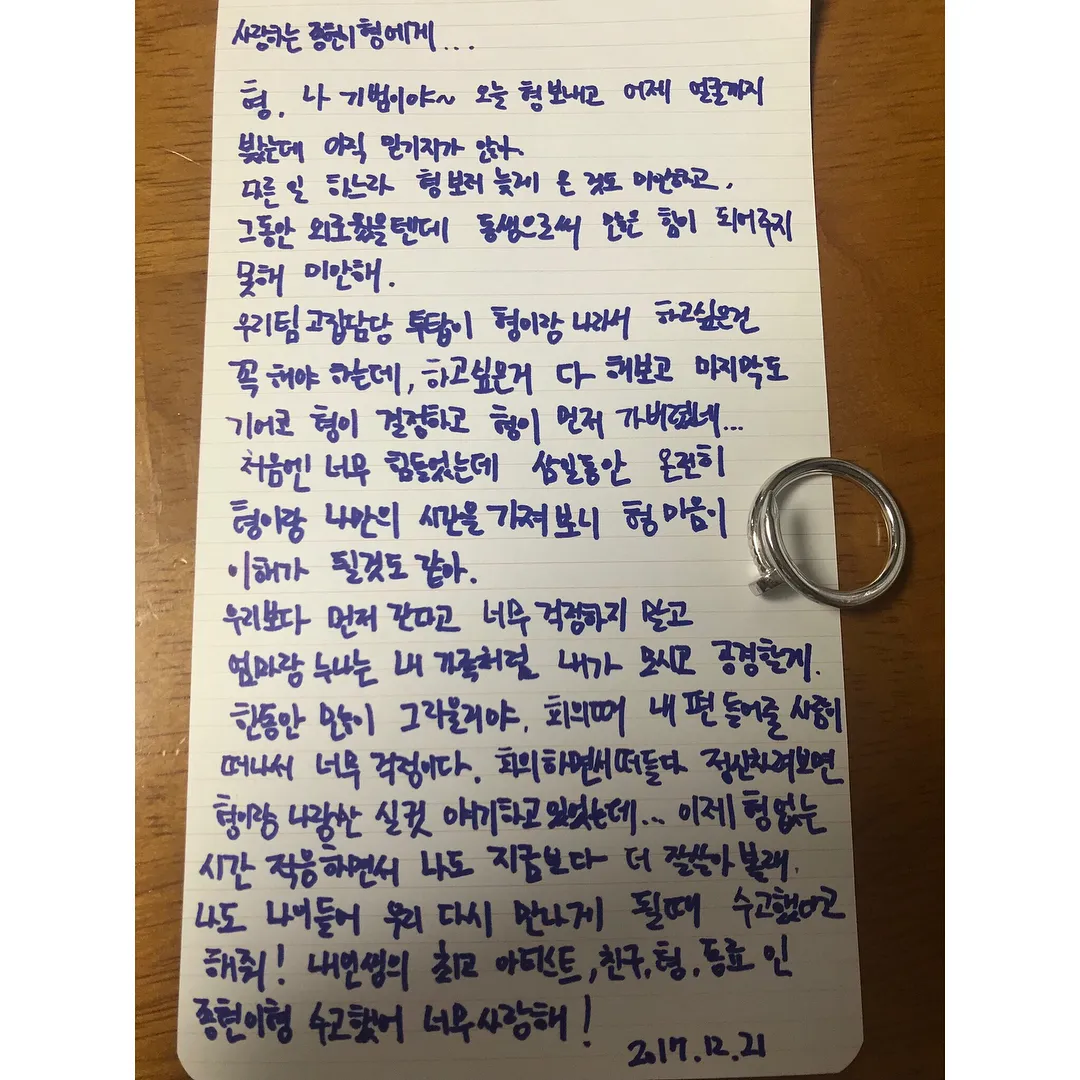 사랑하는 종현이형에게...
형. 나 기범이야~ 오늘 형보내고 어제 얼굴까지
봤는데 아직 믿기지가 않아.
다른 일 하느라 형보러 늦게 온 것도 미안하고,
그동안 외로웠을텐데 동생으로써 많은 힘이 되어주지
못해 미안해.
우리팀 고집담당 투탑이 형이랑 나라서 하고싶은건
꼭 해야 하는데, 하고싶은거 다 해보고 마지막도
기어코 형이 결정하고 형이 먼저 가버렸네...
처음엔 너무 힘들었는데 삼일동안 온전히
형이랑 나만의 시간을 가져보니 형 마음이
이해가 될것도 같아.
우리보다 먼저 간다고 너무 걱정하지 말고
엄마랑 누나는 내 가족처럼 내가 모시고 공경할게.
한동안 많이 그리울거야. 회의때 내 편 들어줄 사람이
떠나서 너무 걱정이다. 회의하면서 떠들다 정신차려보면
형이랑 나랑만 실컷 얘기하고있었는데... 이제 형없는
시간 적응하면서 나도 지금보다 더 잘살아 볼래.
나도 나이들어 우리 다시 만나게 될때 수고했다고
해줘! 내인생의 최고 아티스트,친구,형,동료 인
종현이형 수고했어 너무사랑해!
2017.12.21